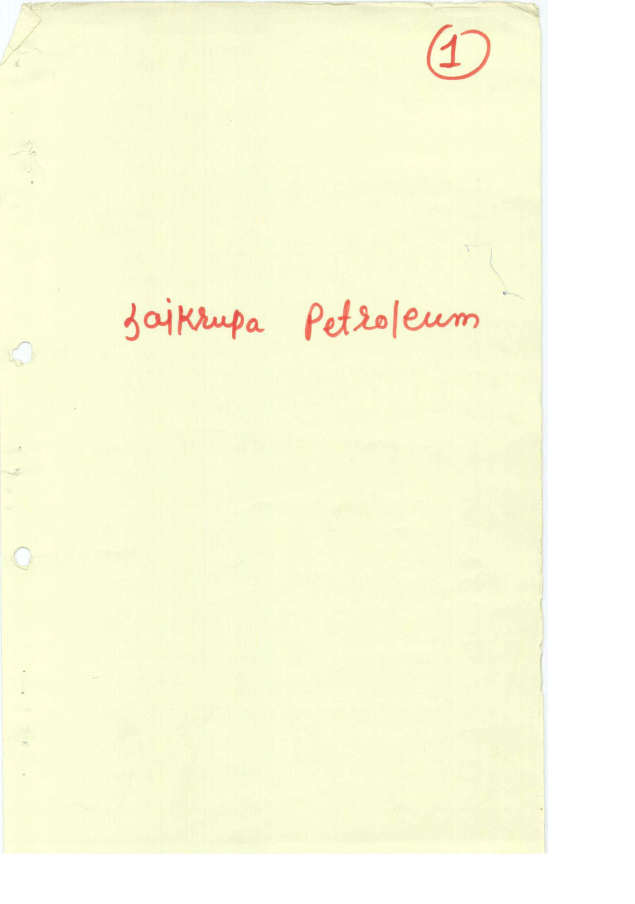 saikrupa Petroleum
1